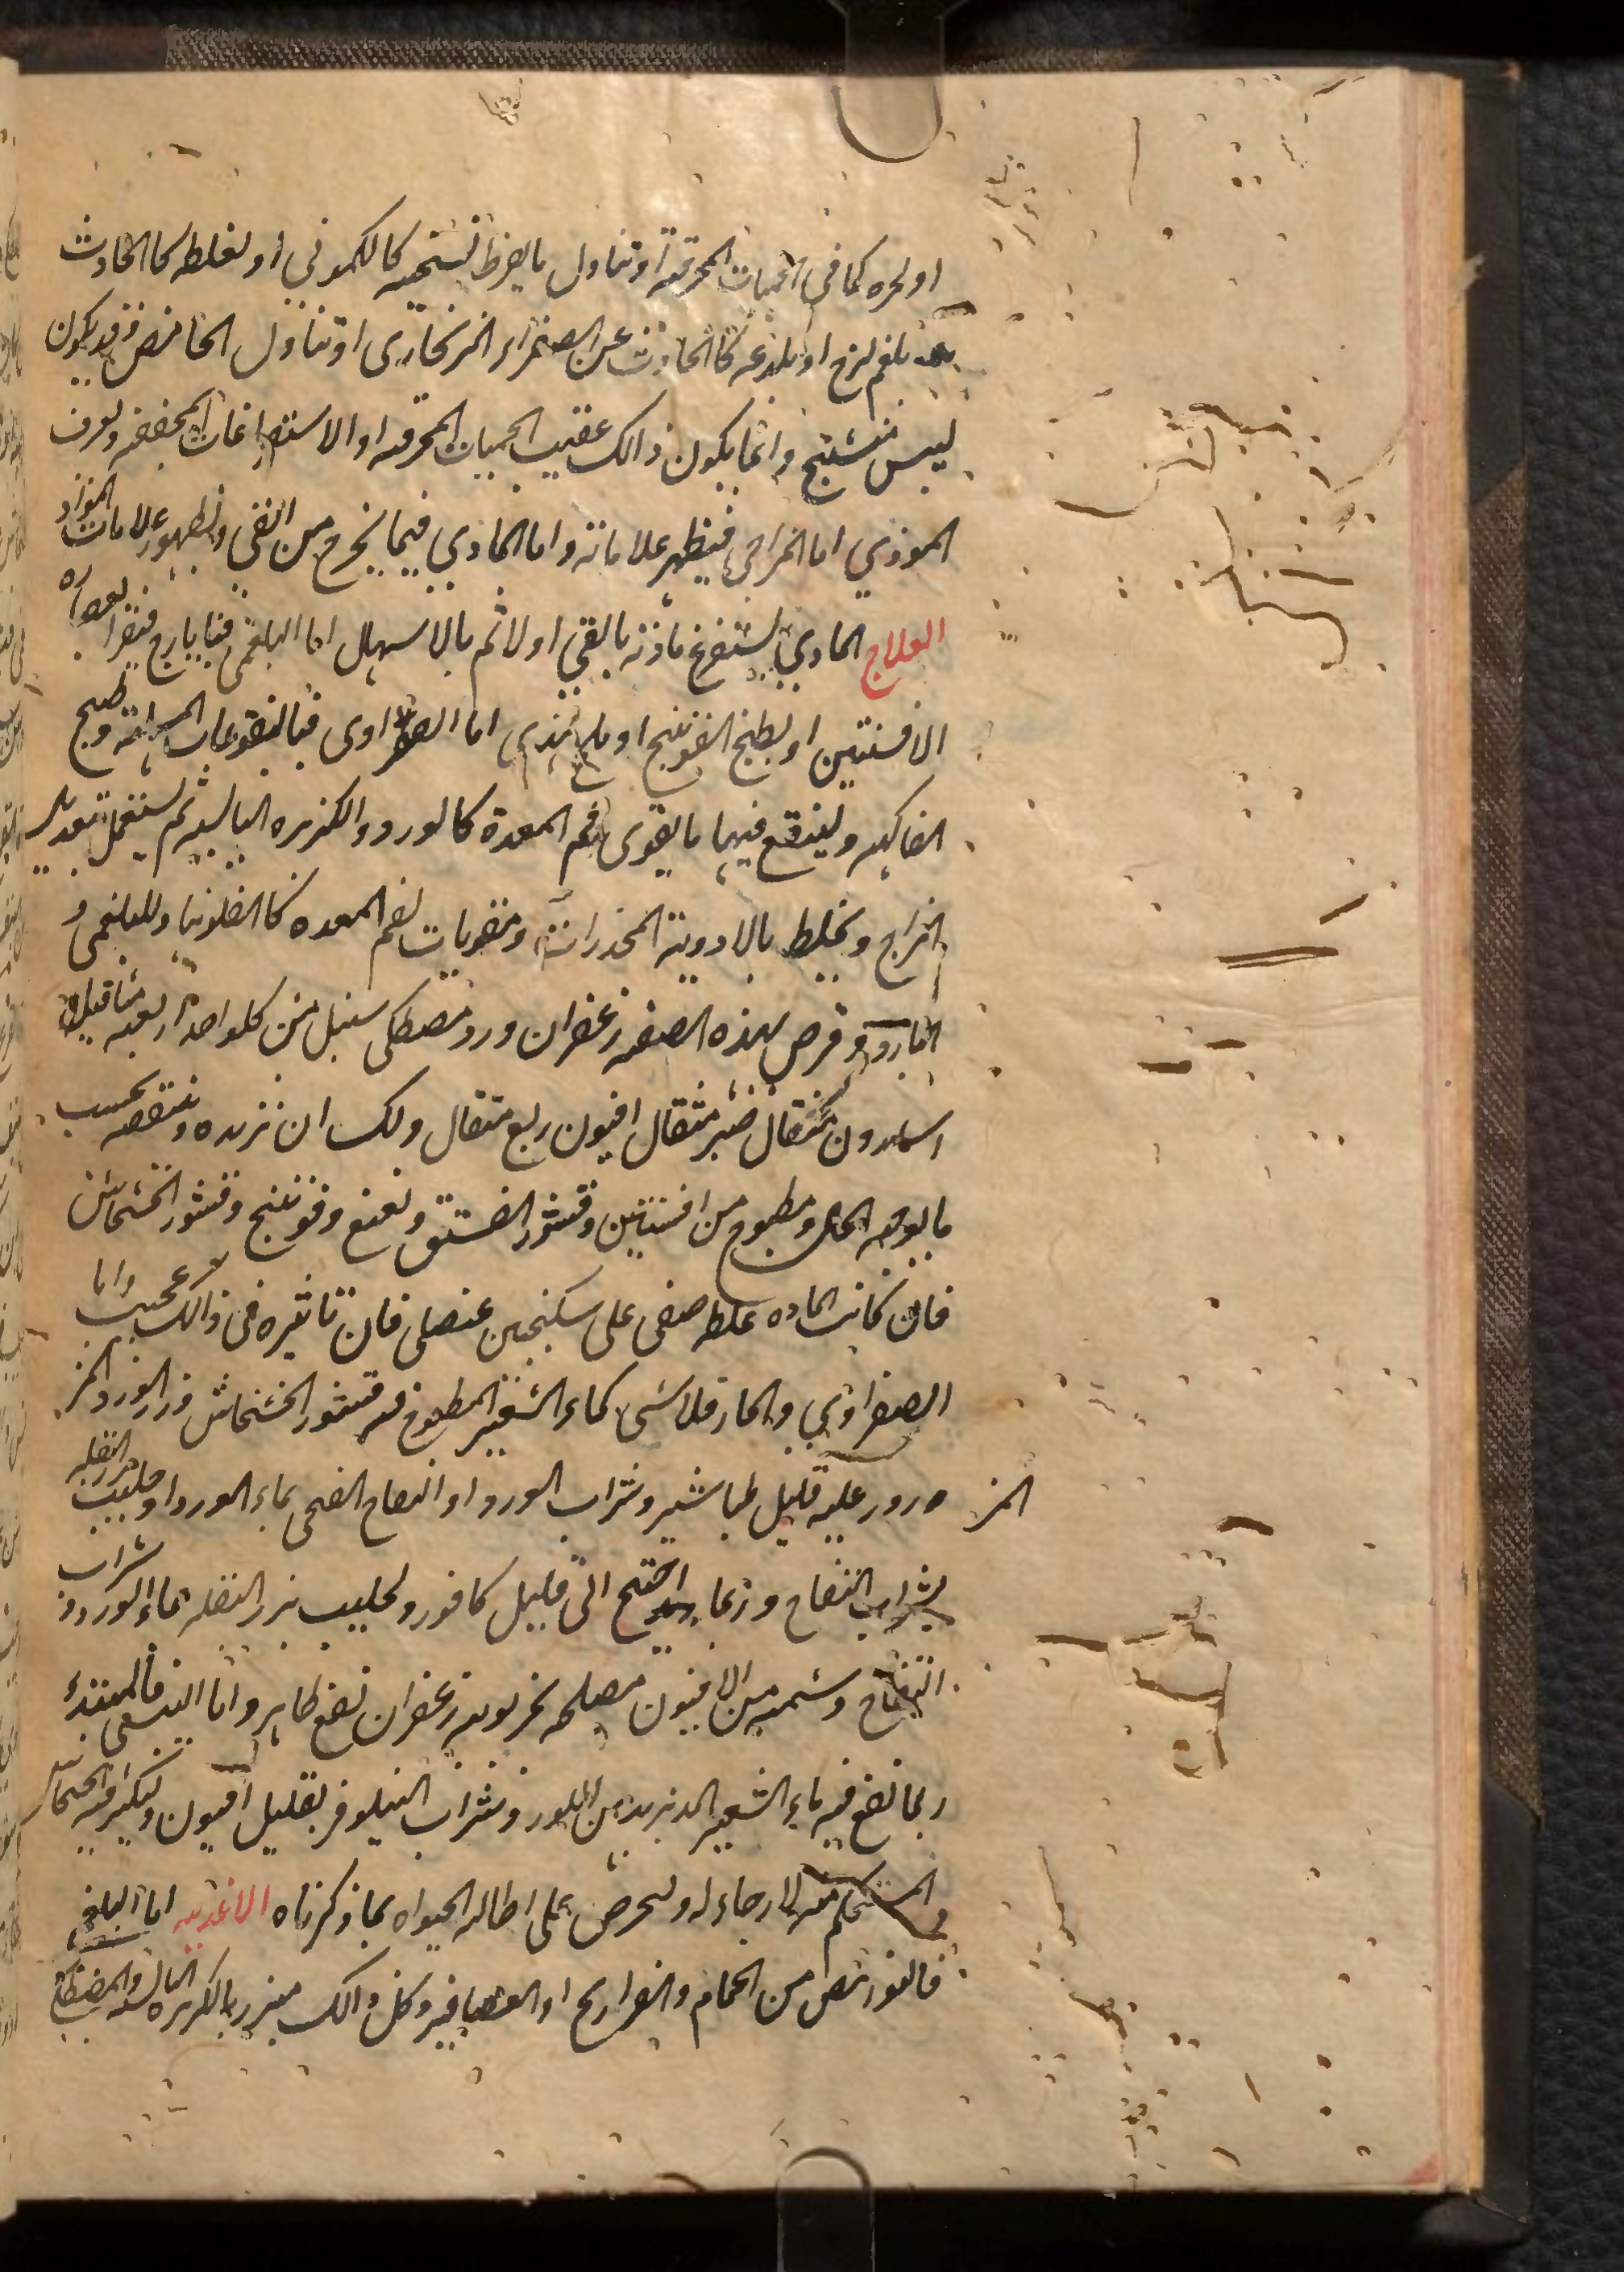 او لحره كما في الحميات المحرقة او تناول ما يفرط تسخينه كالكموني او لغلظه كالحادث
بلغم لزج او بلذعه كالحادث عن الصفراء الزنجاري او تناول الحامض وقد يكون
ليبس متشنج وانما يكون ذالك عقيب الحميات المحرقه او الاستفراغات المجففه ويعرف
الموذي اما المزاجي فيظهر علاماته واما المادي فيما يخرج من القي وبظهور علامات المواد
العلاج المادي يستفرغ مادته بالقي اولا ثم بالاسهال اما البلغمي فبايارج فيقرا بعصاره
الافسنتين او بطبخ الفوتنج او ملح هندي اما الصفراوى فبالنقوعات المسهلة وطبيخ
الفاكهه ولينقع فيها ما يقوى فم المعدة كالورد والكزبره اليابسه ثم يستعمل تعديل
المزاج ويخلط بالادوية المخدرات ومقويات لفم المعده كالفلونيا وللبلغمى و
البارد وقرص بهذه الصفه زعفران ورد مصطكى سنبل من كل واحد اربعه مثاقيل
اسارون مثقال صبر مثقال افيون ربع مثقال ولك ان تزيده وتنقصه بحسب
ما يوجبه الحال ومطبوخ من افسنتين وقشور الفستق ونعنع وفوتنج وقشور الخشخاش
فان كانت الماده غلظه صفى على سكنجبين عنصلى فان تاثيره فى ذالك عجيب واما
الصفراوي والحار فلا شى كماء الشعير المطبوخ فيه قشور الخشخاش وزر الورد المز
المز ودرور عليه قليل طباشير وشراب الورد او التفاح الفحى بماء الورد او حليب بزر البقله
بشراب التفاح وربما احتيج الى قليل كافور ولحليب بزر البقله بماء الورد و شراب
التفاح وشمه من الافيون مصلحه بخروبه زعفران نفع ظاهر واما اليبسى فالمبتدئ
ربما نفع فيه ماء الشعير المدبر بدهن اللوز وشراب النيلوفر بقليل افيون ويكثر فيه الخشخاش
المستحكم منه لا رجاء له وليحرص على اطاله الحيواه بما ذكرناه الاغديه اما البلغمي
فالنواهض من الحمام والفراريج او العصافير وكل ذالك مبزر بالكزبره اليابسه والمصطكى